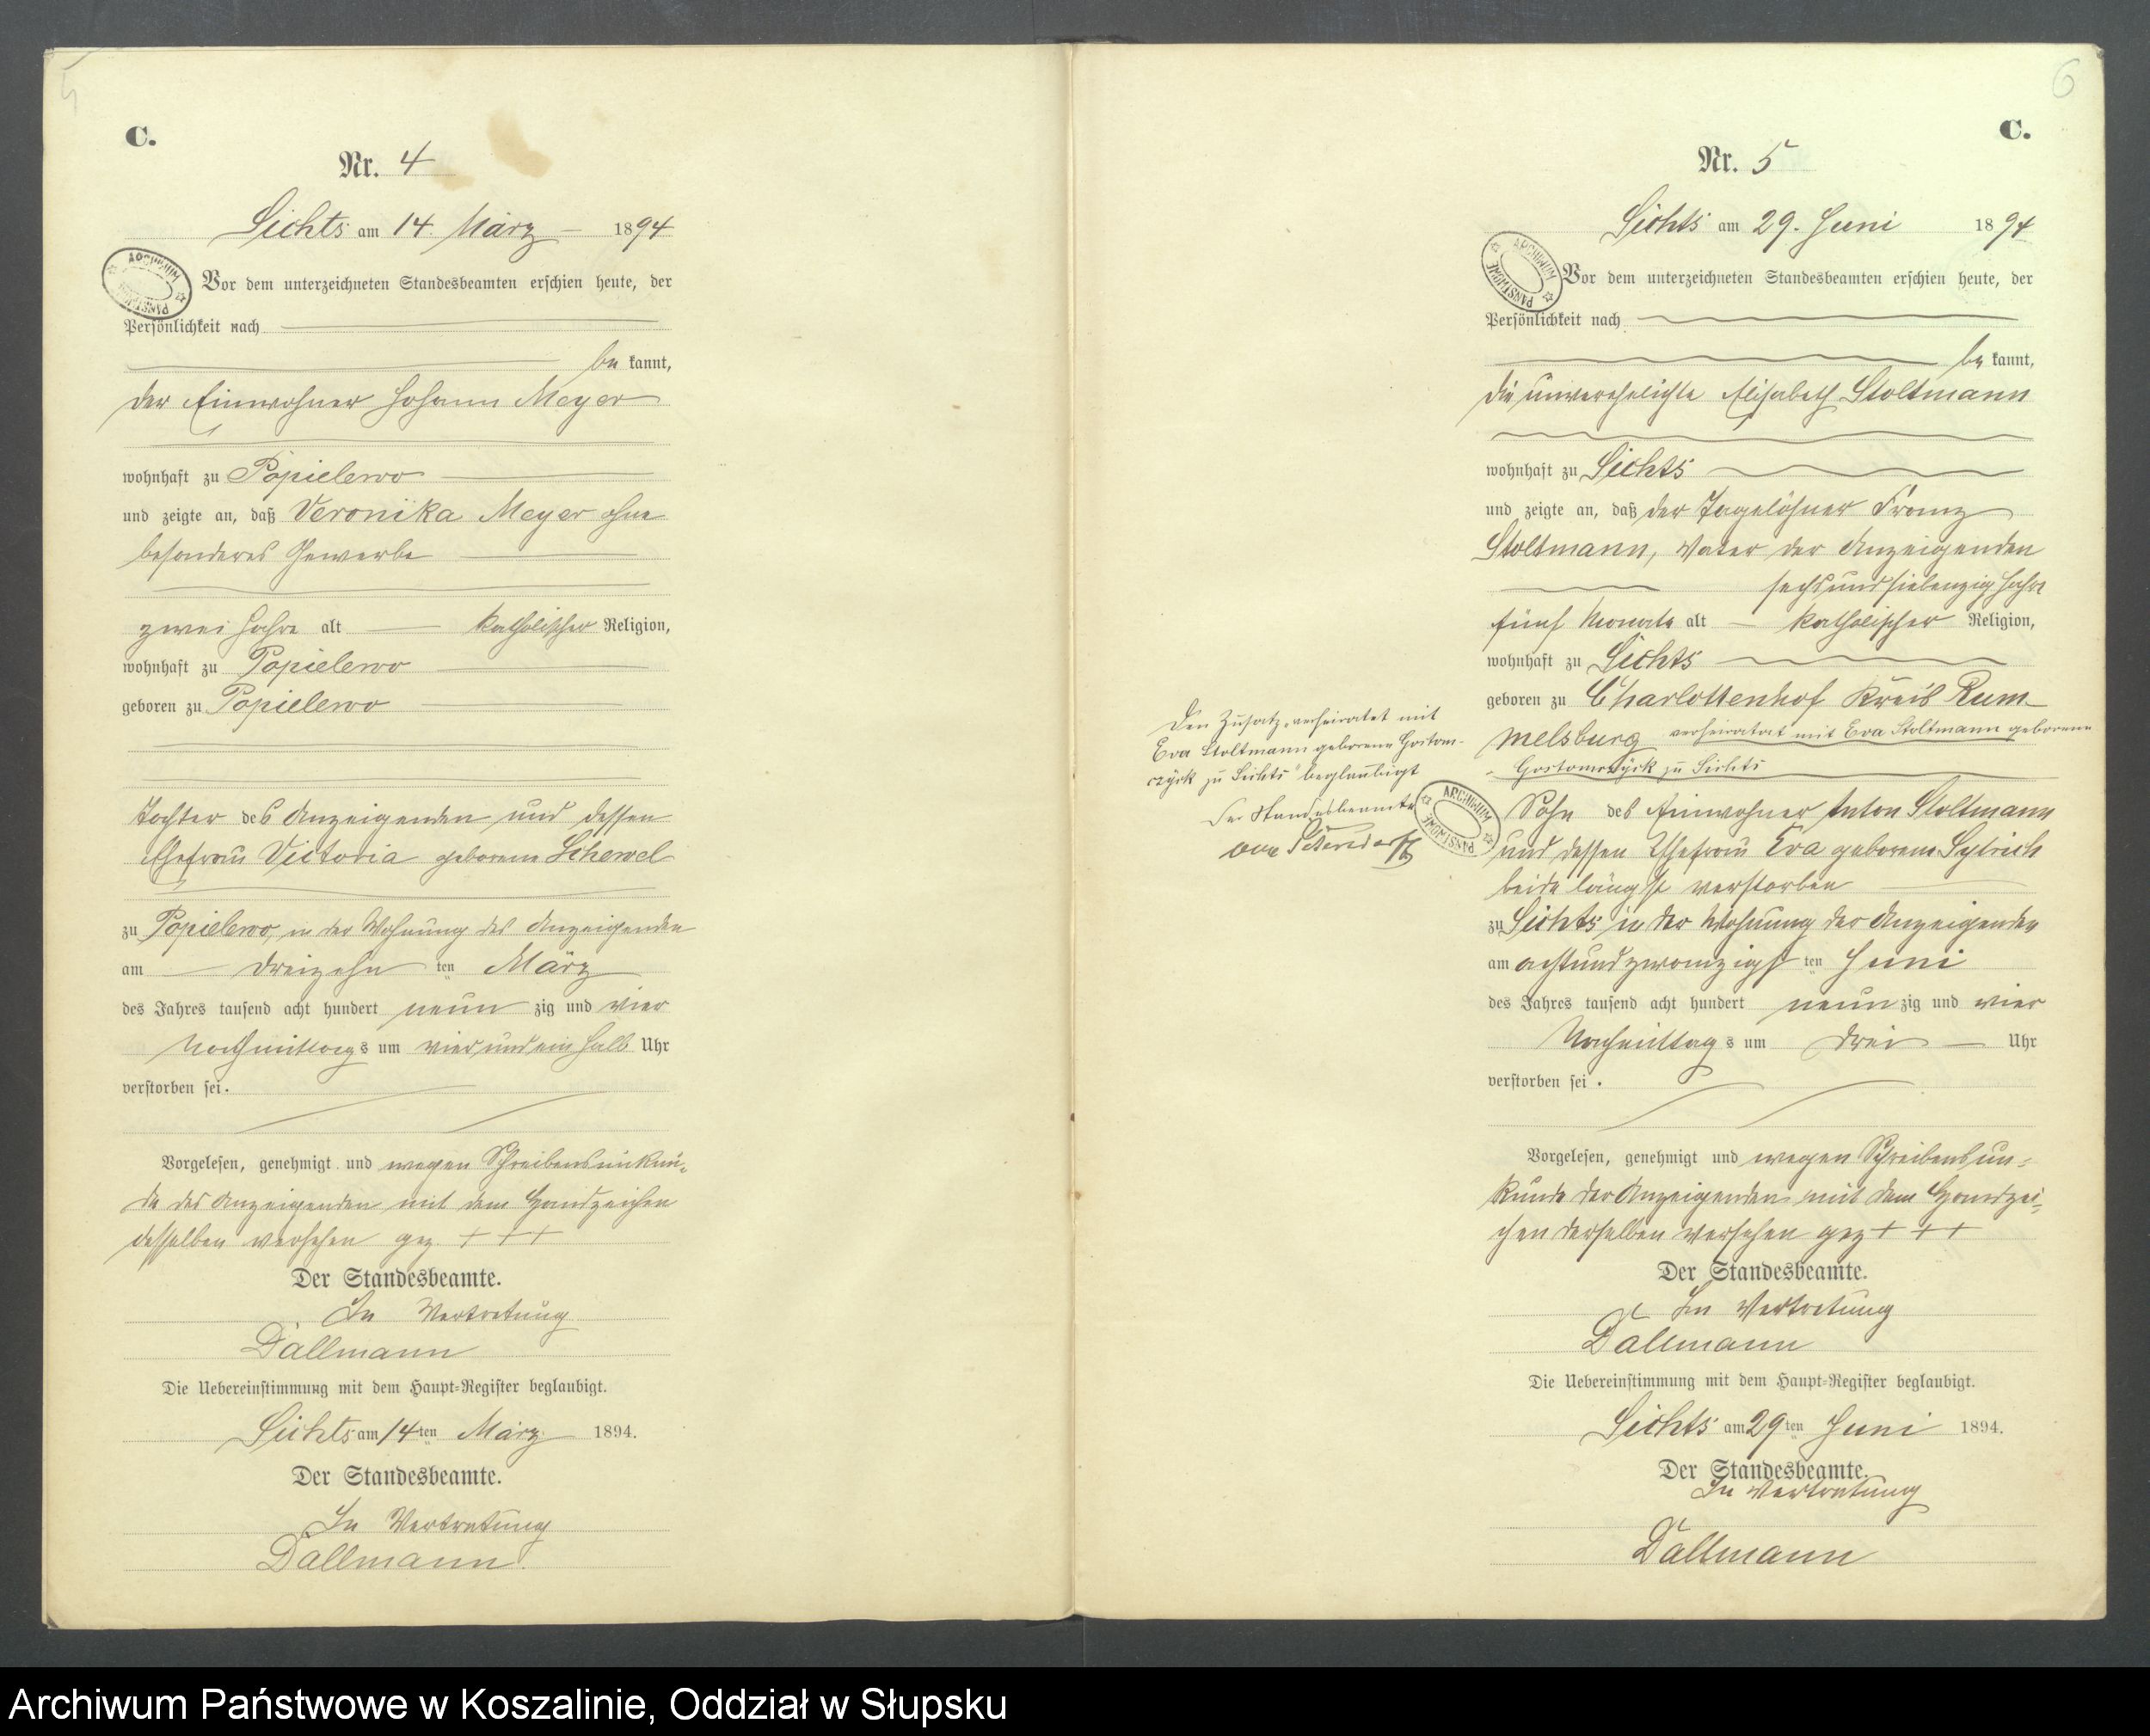 5
C.
Nr. 4
Lichts am 14. März 1894
ARCHIWUM PAŃSTWOWE
Vor dem unterzeichneten Standesbeamten erschien heute, der
Persönlichkeit nach
be kannt,
der Einwohner Johann Meyer
wohnhaft zu Popielewo
und zeigte an, daß Veronika Meyer ohne
besonderes Gewerbe
zwei Jahre alt katholischer Religion,
wohnhaft zu Popielewo
geboren zu Popielewo
Tochter des Anzeigenden und dessen
Ehefrau Victoria geborene Schewel
zu Popielewo, in der Wohnung des Anzeigenden
am dreizehn ten März
des Jahres tausend acht hundert neun zig und vier
Nachmittags um vier und ein halb Uhr
verstorben sei.
Vorgelesen, genehmigt und wegen Schreibensunkun-
de des Anzeigenden mit dem Handzeichen
desselben versehen gez + + +
Der Standesbeamte.
In Vertretung
Dallmann
Die Uebereinstimmung mit dem Haupt-Register beglaubigt.
Lichts am 14ten März 1894.
Der Standesbeamte.
In Vertretung
Dallmann.
6
C.
Nr. 5
Lichts am 29. Juni 1894
ARCHIWUM PAŃSTWOWE
Vor dem unterzeichneten Standesbeamten erschien heute, der
Persönlichkeit nach
be kannt,
die unverehelichte Elisabeth Stoltmann
wohnhaft zu Lichts
und zeigte an, daß der Tagelöhner Franz
Stoltmann, Vater der Anzeigenden
sechsundsiebenzig Jahre
fünf Monate alt katholischer Religion,
wohnhaft zu Lichts
geboren zu Charlottenhof Kreis Rum-
melsburg verheiratet mit Eva Stoltmann geborene
Gostomczyk zu Lichts
Sohn des Einwohner Anton Stoltmann
und dessen Ehefrau Eva geborene
beide längst verstorben
zu Lichts in der Wohnung der Anzeigenden
am achtundzwanzigst ten Juni
des Jahres tausend acht hundert neun zig und vier
Nachmittags um drei Uhr
verstorben sei.
Vorgelesen, genehmigt und wegen Schreibensun-
kunde der Anzeigenden mit dem Handzei-
chen derselben versehen gez + + +
Der Standesbeamte.
In Vertretung
Dallmann
Die Uebereinstimmung mit dem Haupt-Register beglaubigt.
Lichts am 29ten Juni 1894.
Der Standesbeamte.
In Vertretung
Dallmann
Den Zusatz „verheiratet mit
Eva Stoltmann geborene Gostom-
czyk zu Lichts" beglaubigt
Der Standesbeamte
von
ARCHIWUM PAŃSTWOWE
Archiwum Państwowe w Koszalinie, Oddział w Słupsku